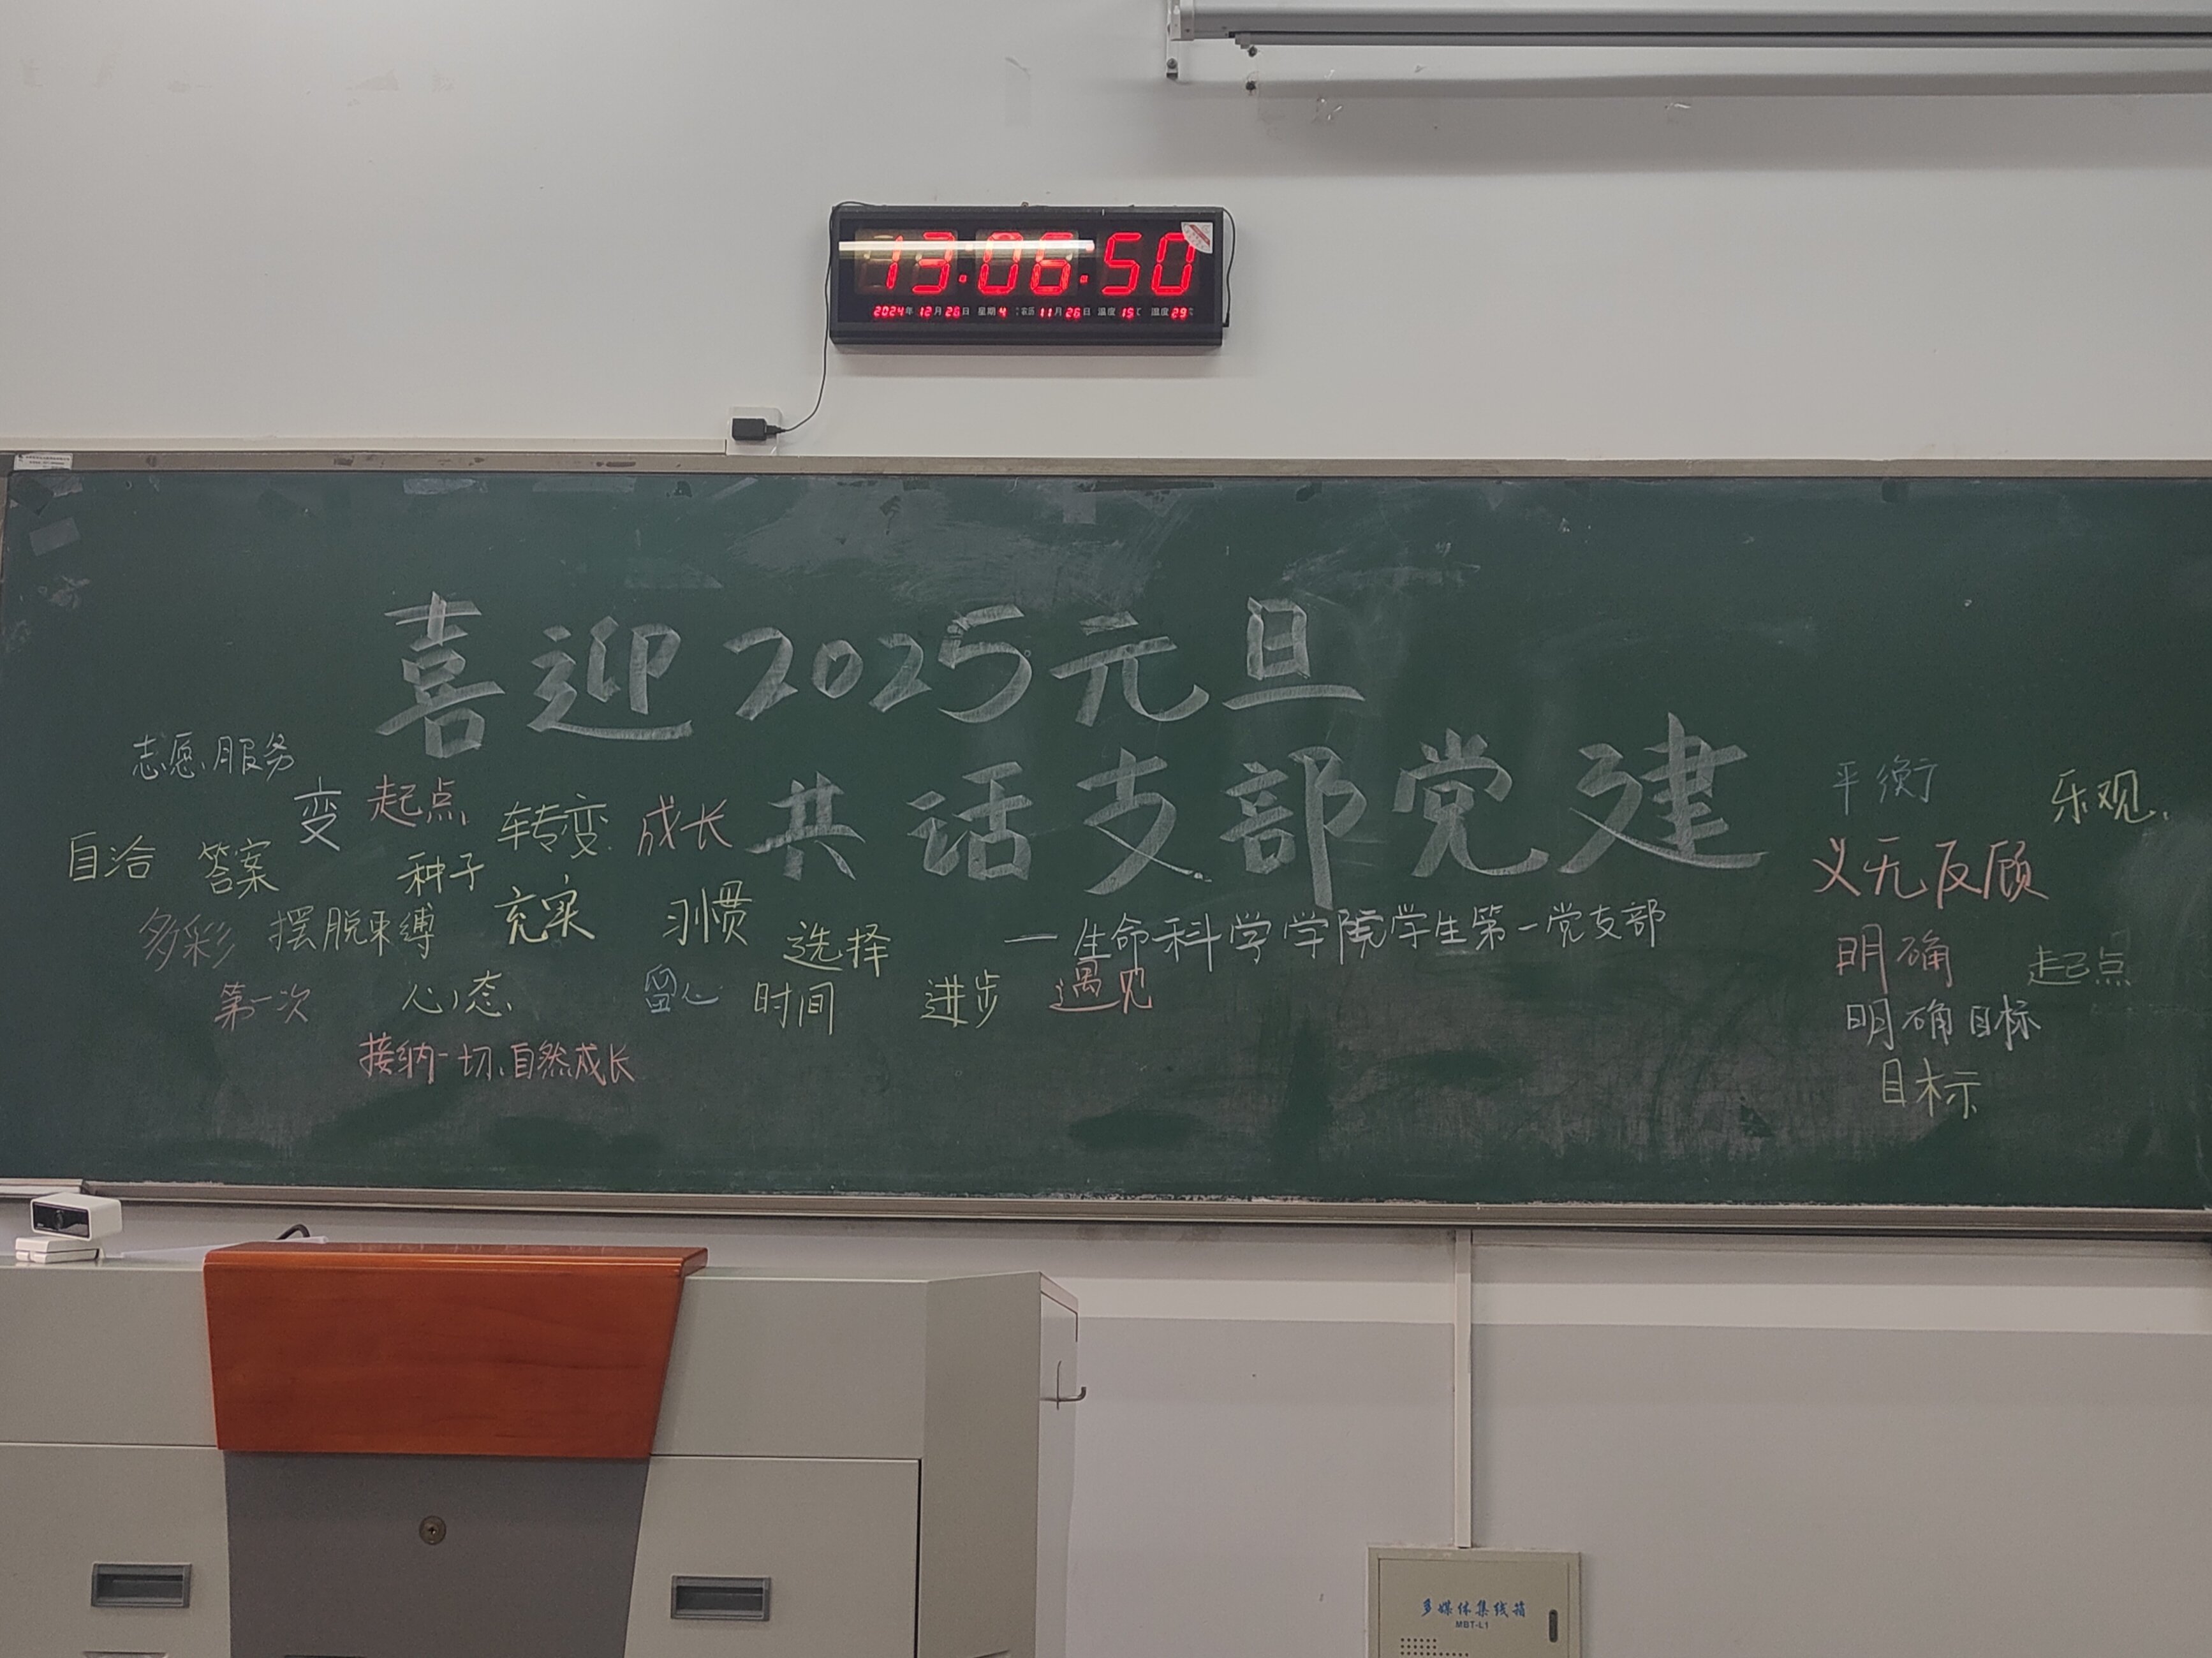 13:06:50
2024年 12月26日 星期4 农历11月26日 温度15℃ 湿度29%
喜迎2025元旦
共话支部党建
—生命科学学院学生第一党支部
志愿服务
变 起点 转变 成长
自洽 答案 种子
多彩 摆脱束缚 充实 习惯 选择
第一次 心态 留心 时间 进步 遇见
接纳一切、自然成长
平衡 乐观
义无反顾
明确 起点
明确目标
目标
多媒体集线箱
MBT-L1